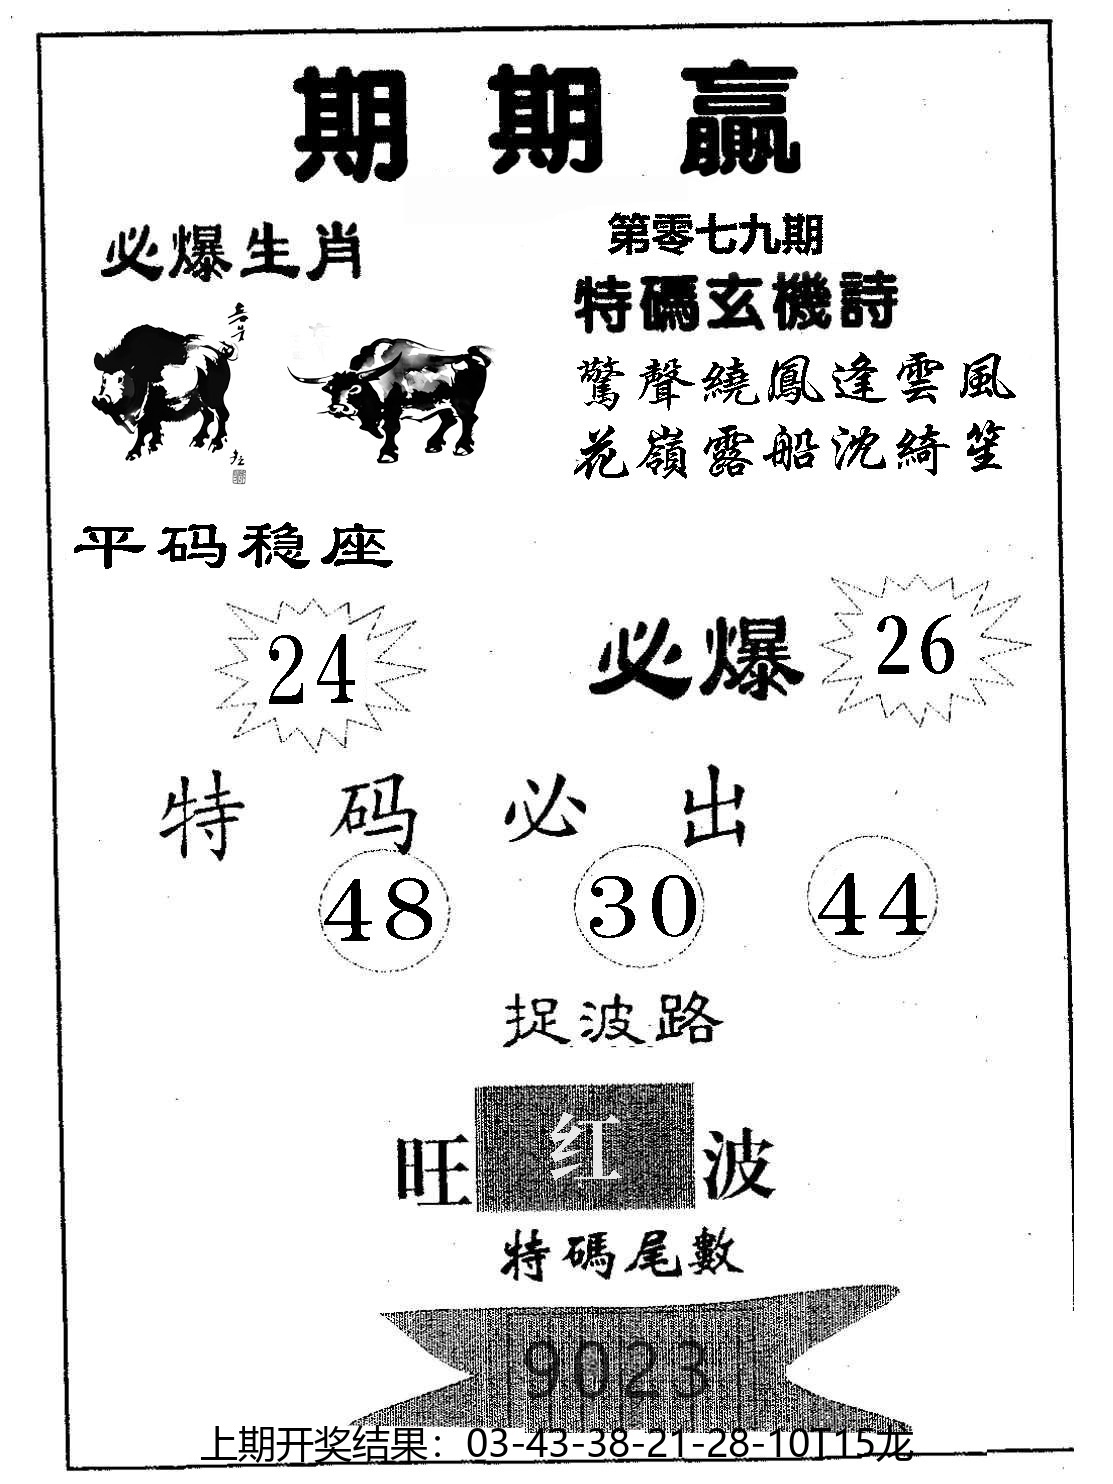 期期贏
必爆生肖
第零七九期
特碼玄機詩
驚聲繞鳳逢雲風
花嶺露船沈綺笙
平码稳座
24
必爆 26
特码必出
48 30 44
捉波路
旺 红 波
特碼尾數
9023
上期开奖结果：03-43-38-21-28-10T15龙